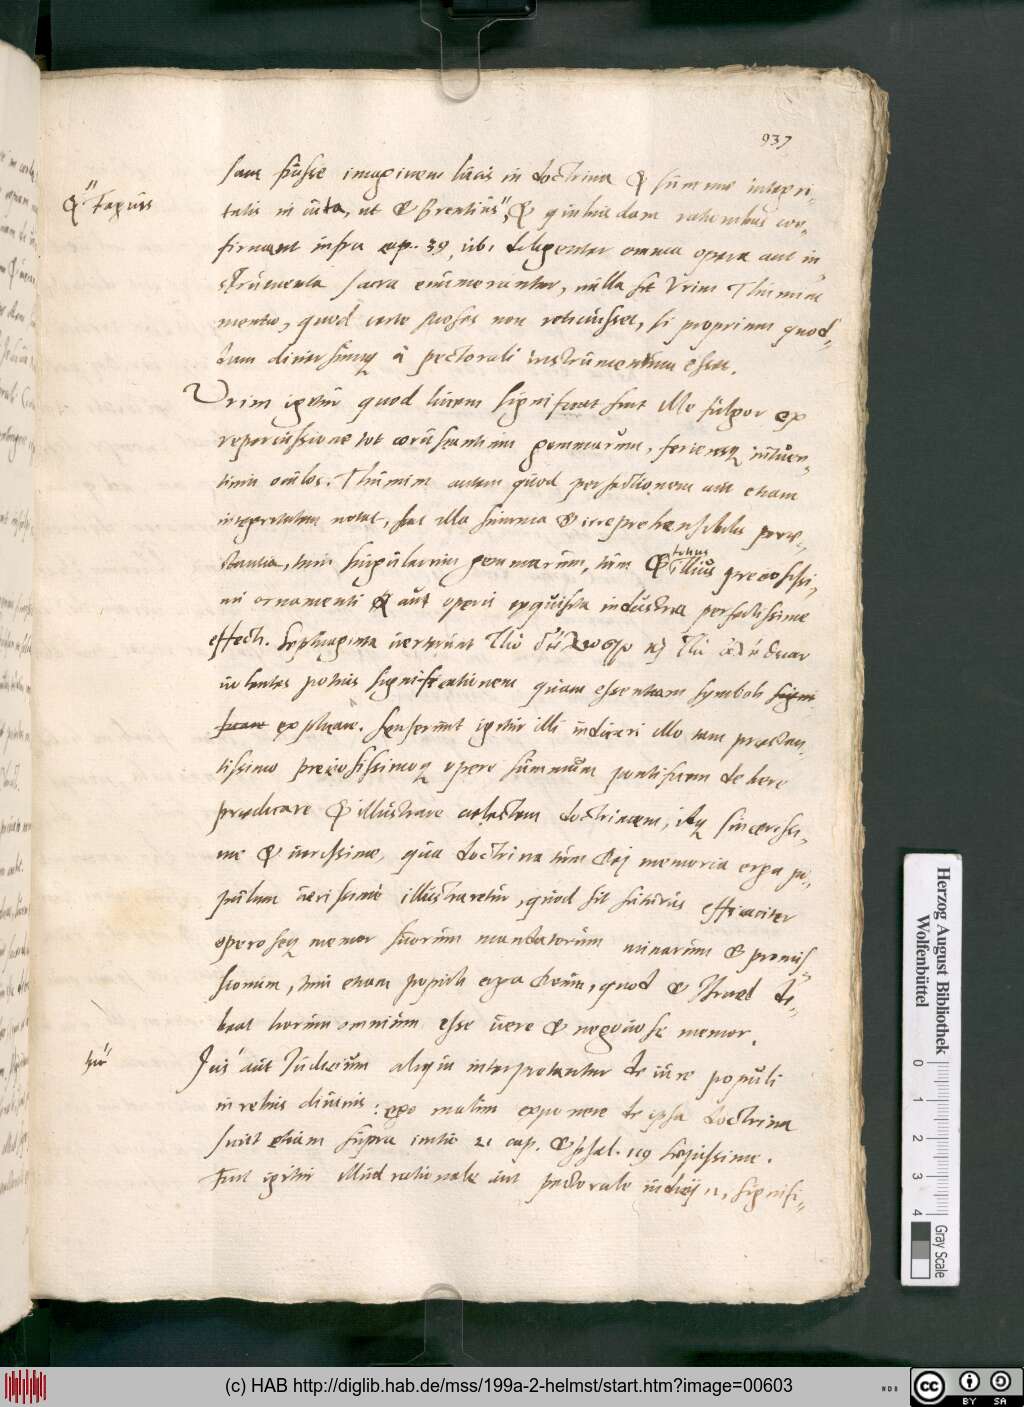 937
sam fuisse imaginem lucis in doctrina & summae integri-
& Fagius
talis in vita, ut & Brentius, & quibusdam rationibus con-
firmant infra cap. 39, ubi diligenter omnia opera aut in
strumenta sacra enumerantur, nulla fit Urim Thumim
mentio, quod certe Moses non reticuisset, si proprium quod-
dam diversumq a pectorali instrumentum esset.
Urim igitur quod lucem significat fuit ille fulgor ex
repercussione tot coruscantium gemmarum, feriensq intuen-
tium oculos. Thumim autem quod perfectionem aut etiam
integritatem notat, fuit illa summa & irreprehensibilis
tum singularum gemmarum, tum & illius totius preciosissi-
mi ornamenti & aut operis exquisita industria perfectissime
effecti. Septuaginta verterunt
volentes potius significationem quam essentiam symboli signi
ficare explicare. Censerunt igitur illi indicari illo tam praestan
tissimo preciosissimoq opere summum pontificem debere
praedicare & illustrare caelestem doctrinam, idq sinceriss-
me & verissime, qua doctrina tum Dei memoria erga po-
pulum verissime illustraretur, quod sit futurus efficaciter
operoseq memor suorum mandatorum minarum & promis-
sionum, tum etiam populi erga Deum, quod & Israel de-
beat horum omnium esse vere & negotiose memor.
Jus aut Judicium aliqui interpretantur de iure populi
in rebus divinis: ego malim exponere de ipsa doctrina
sicut etiam supra initio 21 cap. & psal. 119 sepissime.
Fuit igitur illud rationale aut pectorale iudicij, signifi-